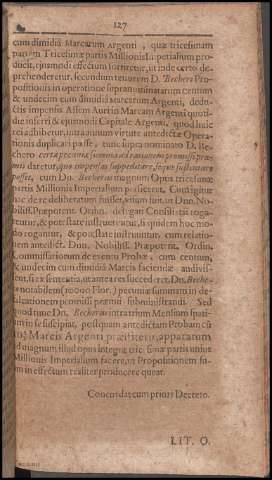 127
cum dimidiâ Marcarum Argenti, quæ tricesimam
partem Tricesimæ partis Millionis Imperialium pro-
ducit, quamodi effectum sortiretur, ut inde certo de-
prehenderetur, secundum tenorem D. Becheri Pro-
positionis in operatione supranominatarum centum
& undecim cum dimidiâ Marcarum Argenti, dedu-
ctis impensis Assem Auri à Marcam Argenti quoti-
die inferri & ejusmodi Capitale Argenti, quod huic
rei adhibetur, intra annum virtute antedictæ Opera-
tionis duplicari posse, tunc supra nominato D. Be-
chero certa pecuniæ summa
daretur,
posset, cum Dn. Becherus magnum Opus tricesimæ
partis Millionis Imperialium perficeret. Cum igitur
hac de re deliberatum fuisset, visum fuit, ut Dnn. No-
biliss. Præpotent. Ordin. delegati Consiliarii roga-
rentur, & potestate instruerentur, si quidem hoc mo-
do rogantur, & potestate instruuntur, cum relatio-
nem antedict. Dnn. Nobiliss. Præpotent. Ordin.
Commissariorum de eventu Probæ, cum centum,
& undecim cum dimidiâ Marcis faciendæ audivis-
sent, si ex sententia, ut ante res succederet, Dn. Beche-
ro notabilem (10000 Flor.) pecuniæ summam in de-
falcationem promissi præmii subministrandi. Sed
quod tunc Dn. Becherus intra trium Mensium spati-
um in se suscipiat, postquam antedictam Probam cū
Marcis Argenti præstiterit, apparatum
ad magnum illud opus integræ tricesimæ partis unius
Millionis Imperialium facere, ut Propositionem su-
am in effectum realiter producere queat.
Concordat cum priori Decreto.
LIT. O.